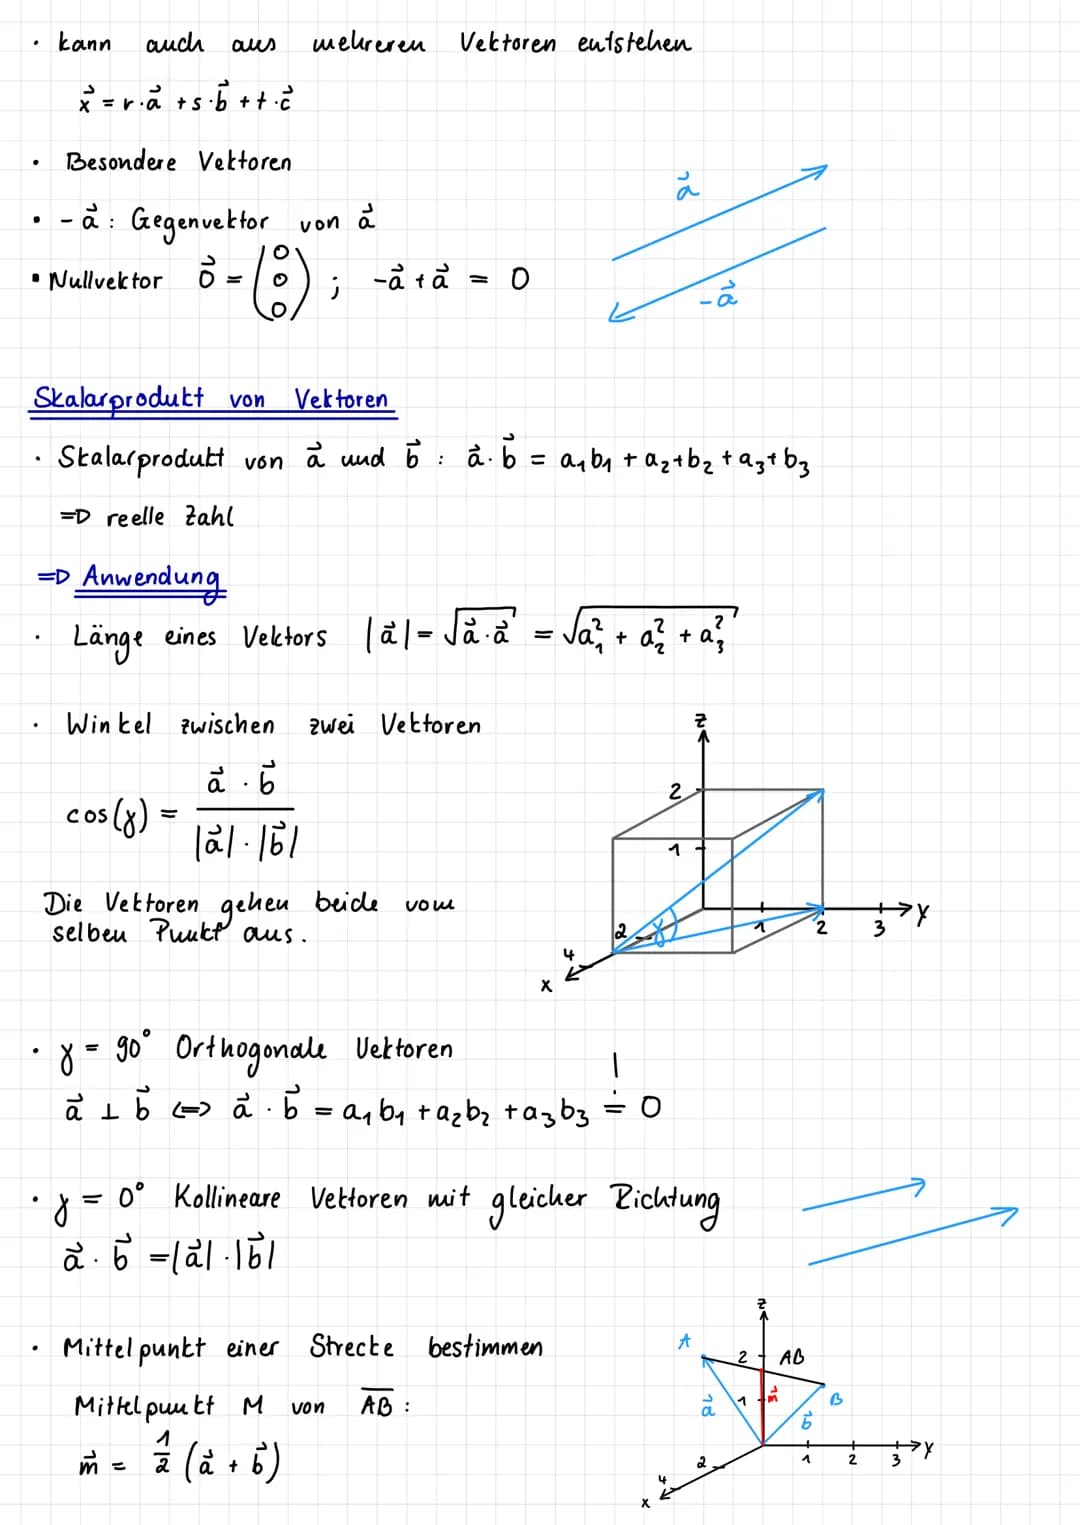 • kann auch aus mehreren Vektoren entstehen
x⃗ = r·a⃗ + s·b⃗ + t·c⃗
• Besondere Vektoren
• -a⃗ : Gegenvektor von a⃗
▪ Nullvektor 0⃗ = (0 0 0) ; -a⃗ + a⃗ = 0
a⃗
-a⃗
Skalarprodukt von Vektoren
• Skalarprodukt von a⃗ und b⃗ : a⃗·b⃗ = a₁b₁ + a₂+b₂ + a₃+b₃
⇒ reelle Zahl
⇒ Anwendung
• Länge eines Vektors |a⃗| = √(a⃗·a⃗) = √(a₁² + a₂² + a₃²)
• Winkel zwischen zwei Vektoren
cos(γ) = (a⃗ · b⃗) / (|a⃗|·|b⃗|)
Die Vektoren gehen beide vom
selben Punkt aus.
z
2
1
γ
2
4
x
1
2
3
y
• γ = 90° Orthogonale Vektoren
a⃗ ⊥ b⃗ ⇔ a⃗ · b⃗ = a₁b₁ + a₂b₂ + a₃b₃ =! 0
• γ = 0° Kollineare Vektoren mit gleicher Richtung
a⃗ · b⃗ = |a⃗|·|b⃗|
• Mittelpunkt einer Strecke bestimmen
Mittelpunkt M von A̅B̅ :
m⃗ = 1/2 (a⃗ + b⃗)
z
A
2
AB
a⃗
1
m⃗
b⃗
B
2
4
x
1
2
3
y